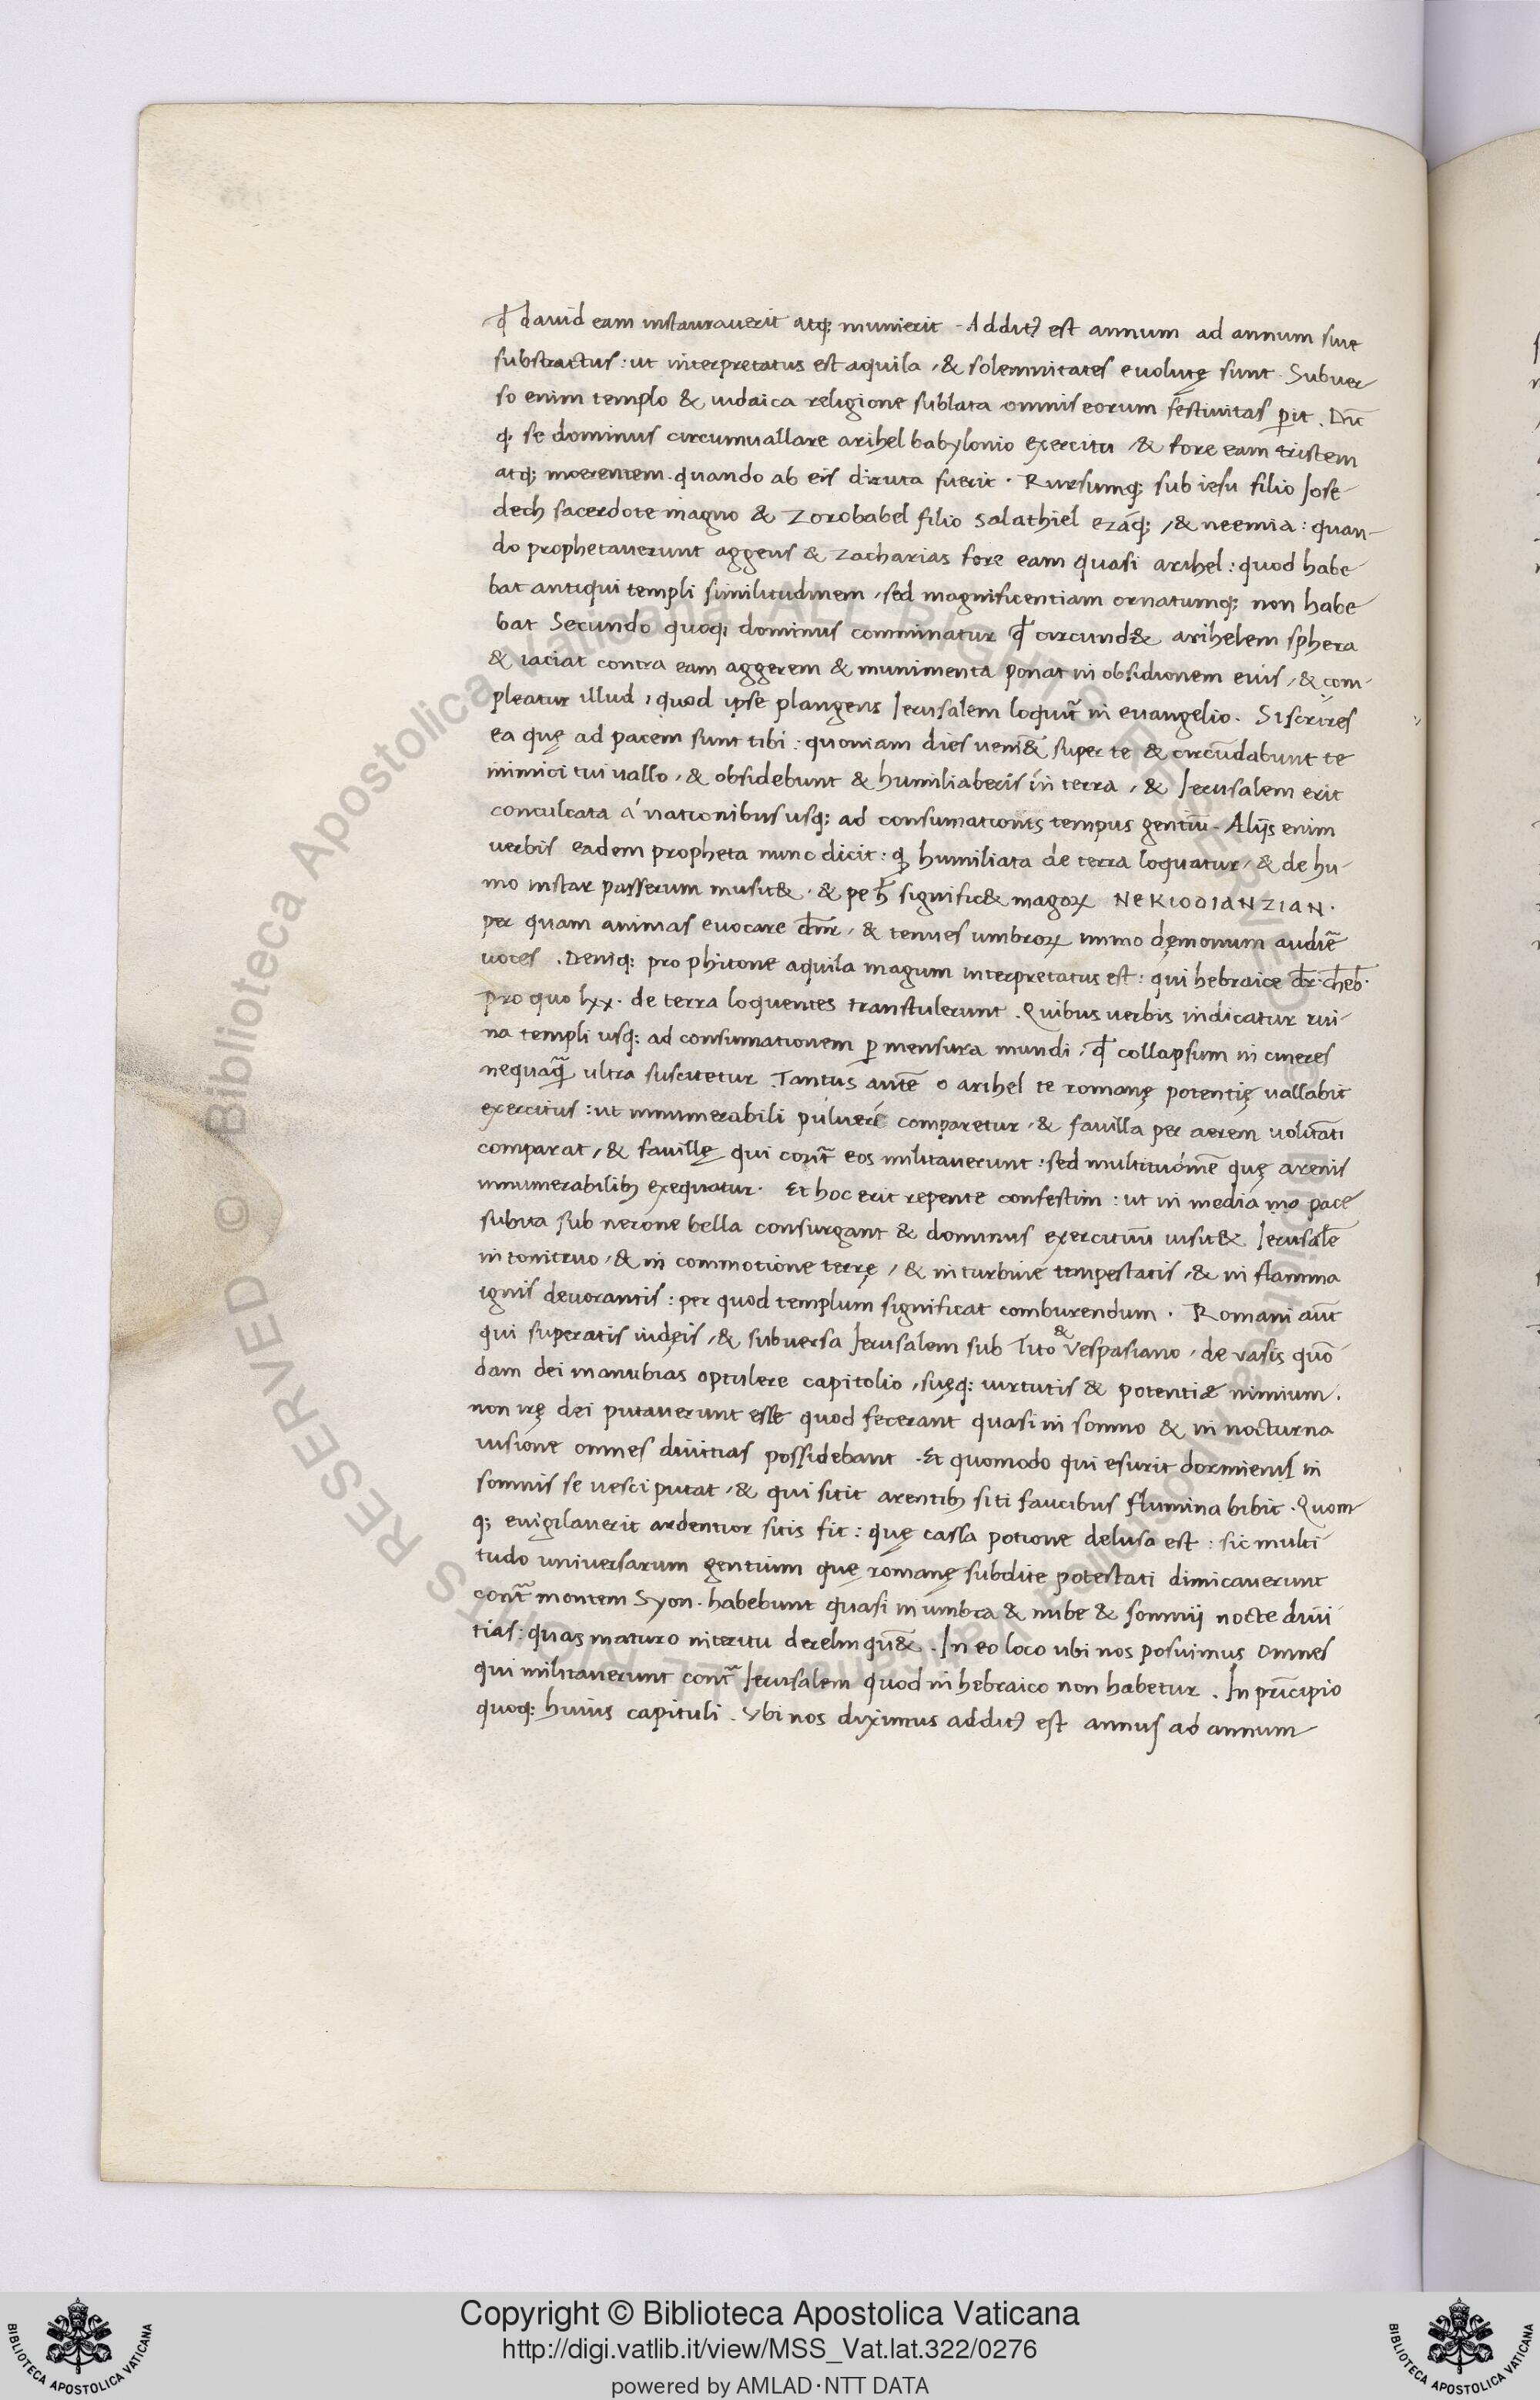 ꝙ dauid eam instaurauerit atq; munierit. Addit⁹ est annum ad annum siue
substractus: ut interpretatus est aquila, & solemnitates euolutę sunt. Subuer
so enim templo & iudaica religione sublata omnis eorum festiuitas ꝑit. Dic̄
q; se dominus circumuallare arihel babylonio exercitu, & fore eam tristem
atq; moerentem. quando ab eis diruta fuerit. Rursumq; sub iesu filio Iose
dech sacerdote magno & Zorobabel filio salathiel ezaq; , & neemia: quan-
do prophetauerunt aggeus & zacharias fore eam quasi arihel: quod habe
bat antiqui templi similitudinem, sed magnificentiam ornatumq; non habe
bat Secundo quoq; dominus comminatur ꝙ circund& arihelem sphera
& iaciat contra eam aggerem & munimenta ponat in obsidionem eius, & com-
pleatur illud, quod ipse plangens Ierusalem loquit̄ in euangelio. Si scires
ea quę ad pacem sunt tibi: quoniam dies ueni& super te & circūdabunt te
inimici tui uallo, & obsidebunt & humiliaberis in terra, & Ierusalem erit
conculcata á nationibus usq; ad consumationis tempus gentiū. Alijs enim
uerbis eadem propheta nunc dicit: ꝙ humiliata de terra loquatur, & de hu-
mo instar passerum musit&. & pe h̄ signific& magoꝝ NEKIOOIANZIAN.
per quam animas euocare dn̄r, & tenues umbroꝝ immo dęmonum audiē
uoces. Deniq; pro phitone aquila magum interpretatus est: qui hebraice dr̄.
pro quo lxx. de terra loquentes transtulerunt. Quibus uerbis indicatur rui-
na templi usq; ad consumationem ꝑ mensura mundi, ꝙ collapsum in cineres
nequaq̄ ultra suscitetur. Tantus autē o arihel te romanę potentię uallabit
exercitus: ut innumerabili pulueré comparetur, & fauilla per aerem uolitāti
comparat, & fauillę qui cont̄ eos militauerunt: sed multitudinē quę arenis
innumerabilib; exequatur. Et hoc erit repente confestim: ut in media mo pace
subita sub nerone bella consurgant & dominus exercituū uisit& Ierusalē
in tonitruo, & in commotione terrę, & in turbine tempestatis, & in flamma
ignis deuorantis: per quod templum significat comburendum. Romani aūt
qui superatis iudęis, & subuersa Ierusalem sub Tito & Vespasiano, de vasis quō
dam dei manubias optulere capitolio, suęq; uirtutis & potentiæ nimium.
non irę dei putauerunt esse quod fecerant quasi in somno & in nocturna
uisione omnes diuitias possidebant. Et quomodo qui esurit dormiens in
somnis se uesci putat, & qui sitit arentib; siti faucibus flumina bibit. Quom
q; euigilauerit ardentior sitis fit: quę cassa potione delusa est: sic multi
tudo uniuersarum gentium quę romanę subdite potestati dimicauerunt
cont̄ montem Syon. habebunt quasi in umbra & nube & somnij nocte diui
tias: quas maturo interitu derelinqu&. In eo loco ubi nos posuimus omnes
qui militauerunt cont̄ Ierusalem quod in hebraico non habetur. In prīcipio
quoq; huius capituli. Vbi nos diximus addit⁹ est annus ad annum
Copyright © Biblioteca Apostolica Vaticana
http://digi.vatlib.it/view/MSS_Vat.lat.322/0276
powered by AMLAD·NTT DATA
BIBLIOTECA APOSTOLICA VATICANA
BIBLIOTECA APOSTOLICA VATICANA